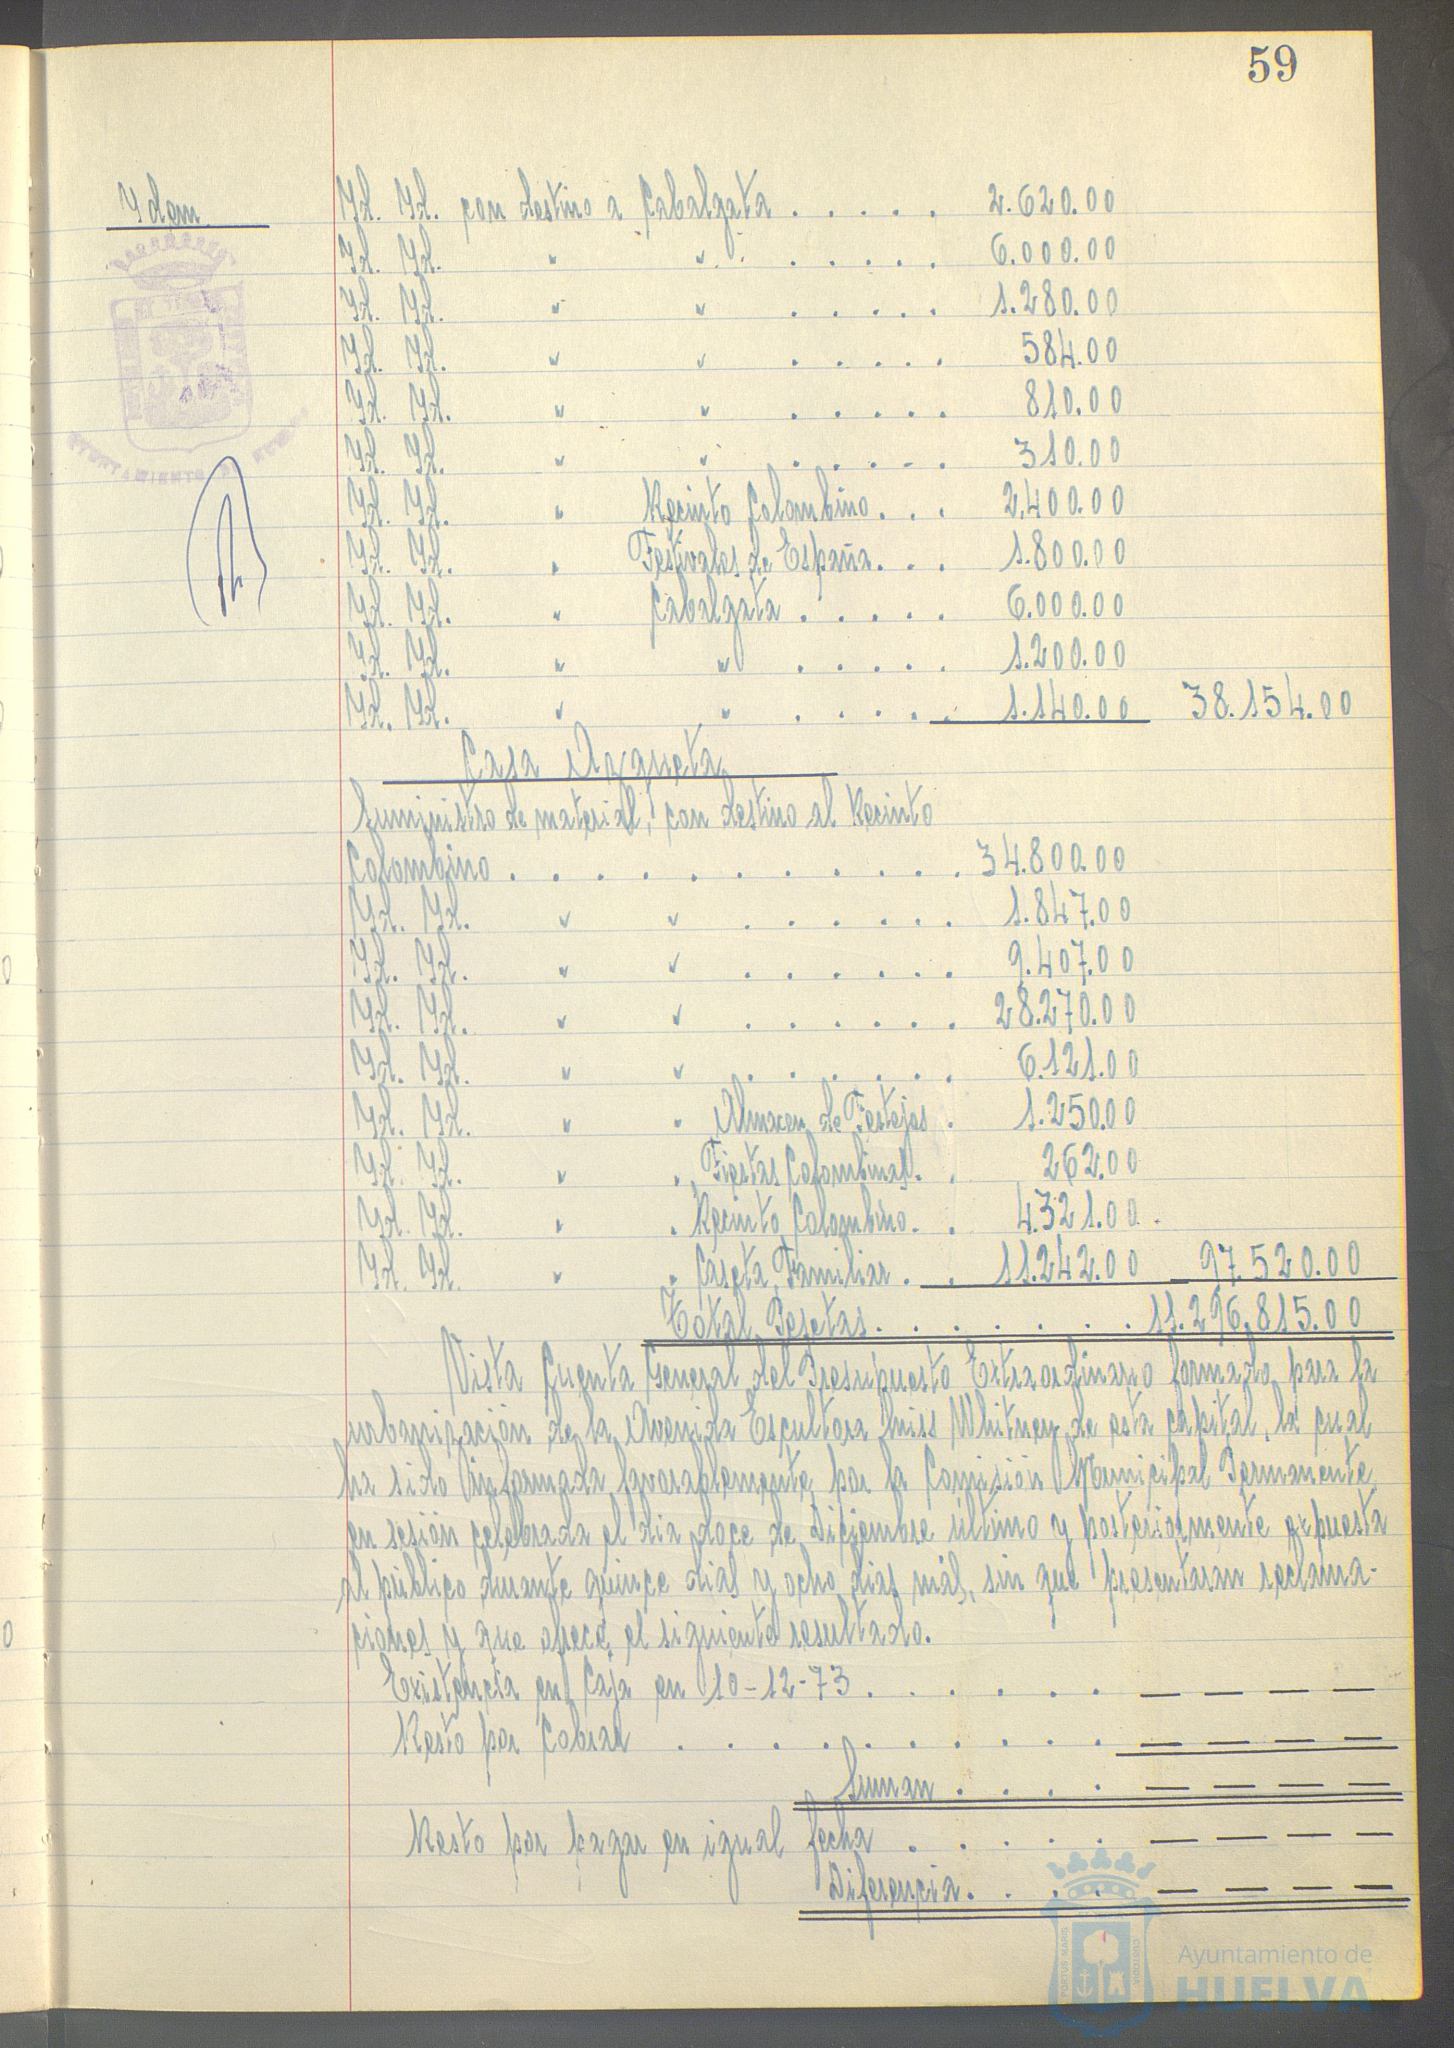 59
Idem
Id. Id. con destino a Cabalgata . . . . . 2.620.00
Id. Id. " " . . . . . 6.000.00
Id. Id. " " . . . . . 1.280.00
Id. Id. " " . . . . . 584.00
Id. Id. " " . . . . . 810.00
Id. Id. " " . . . . . 310.00
Id. Id. " Recinto Colombino . . . 2.400.00
Id. Id. " Festivales de España . . . 1.800.00
Id. Id. " Cabalgata . . . . . 6.000.00
Id. Id. " " . . . . . 1.200.00
Id. Id. " " . . . . . 1.140.00 38.154.00
Casa Azqueta
Suministro de material, con destino al Recinto
Colombino . . . . . . . . . . 34.800.00
Id. Id. " " . . . . . 1.847.00
Id. Id. " " . . . . . 9.407.00
Id. Id. " " . . . . . 28.270.00
Id. Id. " " . . . . . 6.121.00
Id. Id. " " Almacen de Festejos . 1.250.00
Id. Id. " " Fiestas Colombinas . . 262.00
Id. Id. " " Recinto Colombino . . 4.321.00
Id. Id. " " Caseta Familiar . . 11.242.00 97.520.00
Total Pesetas . . . . . . 11.296.815.00
Vista Cuenta General del Presupuesto Extraordinario formado para la
urbanización de la Avenida Escultora Miss Whitney de esta capital, la cual
ha sido informada favorablemente por la Comisión Municipal Permanente
en sesión celebrada el dia doce de Diciembre último y posteriormente expuesta
al público durante quince dias y ocho dias más, sin que presentaran reclama-
ciones y que ofrece el siguiente resultado.
Existencia en Caja en 10-12-73 . . . . . . — — — —
Resto por Cobrar . . . . . . . . . . — — — —
Suman . . . . — — — —
Resto por pagar en igual fecha . . . . . — — — —
Diferencia . . . . — — — —
AYUNTAMIENTO DE HUELVA
PORTUS MARIS
CUSTODIA
Ayuntamiento de
HUELVA